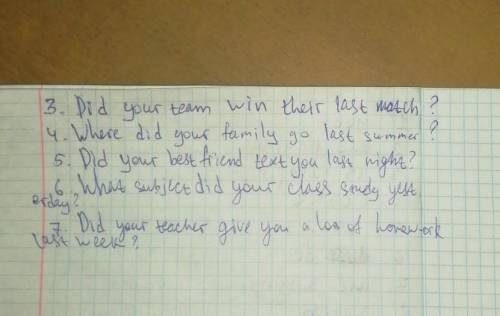 3. Did your team win their last match?
4. Where did your family go last summer?
5. Did your best friend text you last night?
6. What subject did your class study yest
erday?
7. Did your teacher give you a lot of homework
last week?